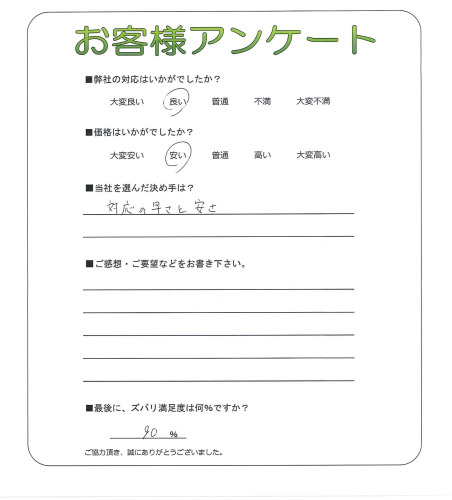 お客様アンケート
■弊社の対応はいかがでしたか？
大変良い 良い 普通 不満 大変不満
■価格はいかがでしたか？
大変安い 安い 普通 高い 大変高い
■当社を選んだ決め手は？
対応の早さと安さ
■ご感想・ご要望などをお書き下さい。
■最後に、ズバリ満足度は何%ですか？
90 %
ご協力頂き、誠にありがとうございました。